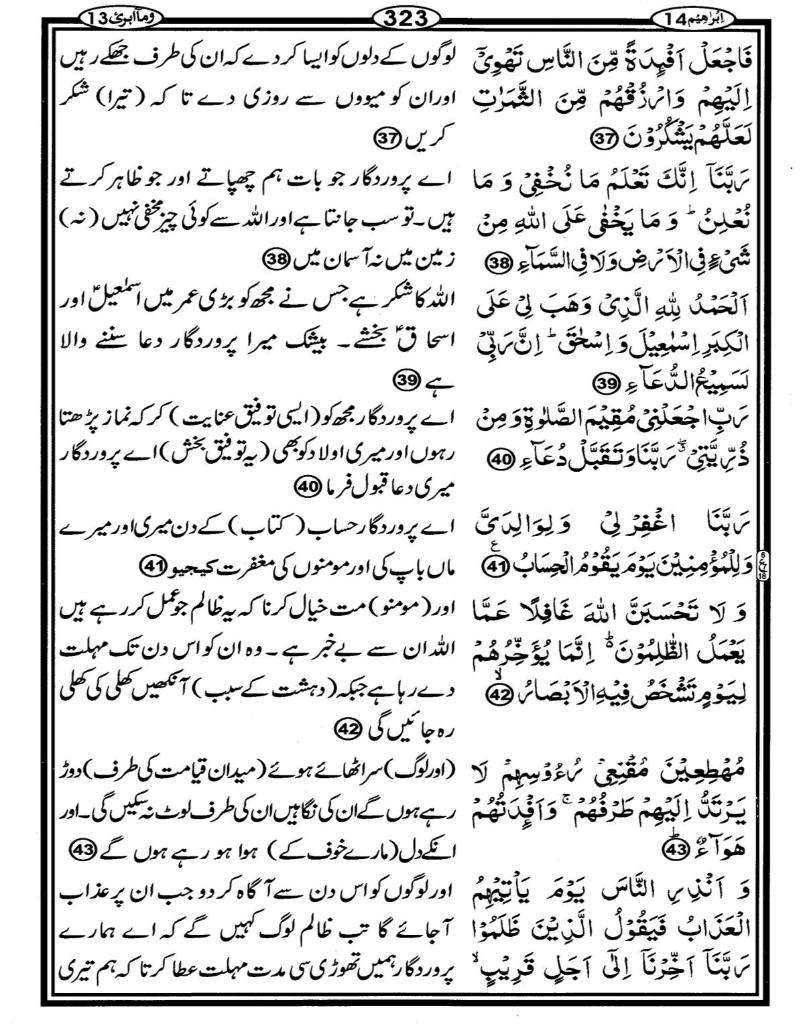 اِبْرٰهِيْم 14
323
وما ابرئ 13
فَاجْعَلْ اَفْـِٕدَةً مِّنَ النَّاسِ تَهْوِيْٓ
اِلَيْهِمْ وَارْزُقْهُمْ مِّنَ الثَّمَرٰتِ
لَعَلَّهُمْ يَشْكُرُوْنَ 37
رَبَّنَاۤ اِنَّكَ تَعْلَمُ مَا نُخْفِيْ وَ مَا
نُعْلِنُ ؕ وَ مَا يَخْفٰى عَلَى اللّٰهِ مِنْ
شَيْءٍ فِي الْاَرْضِ وَلَا فِي السَّمَآءِ 38
اَلْحَمْدُ لِلّٰهِ الَّذِيْ وَهَبَ لِيْ عَلَى
الْكِبَرِ اِسْمٰعِيْلَ وَ اِسْحٰقَ ؕ اِنَّ رَبِّيْ
لَسَمِيْعُ الدُّعَآءِ 39
رَبِّ اجْعَلْنِيْ مُقِيْمَ الصَّلٰوةِ وَ مِنْ
ذُرِّيَّتِيْ ۖ رَبَّنَا وَ تَقَبَّلْ دُعَآءِ 40
رَبَّنَا اغْفِرْ لِيْ وَ لِوَالِدَيَّ
وَ لِلْمُؤْمِنِيْنَ يَوْمَ يَقُوْمُ الْحِسَابُ 41 ع
وَ لَا تَحْسَبَنَّ اللّٰهَ غَافِلًا عَمَّا
يَعْمَلُ الظّٰلِمُوْنَ ؕ اِنَّمَا يُؤَخِّرُهُمْ
لِيَوْمٍ تَشْخَصُ فِيْهِ الْاَبْصَارُ 42
مُهْطِعِيْنَ مُقْنِعِيْ رُءُوْسِهِمْ لَا
يَرْتَدُّ اِلَيْهِمْ طَرْفُهُمْ ۚ وَ اَفْـِٕدَتُهُمْ
هَوَآءٌ 43
وَ اَنْذِرِ النَّاسَ يَوْمَ يَاْتِيْهِمُ
الْعَذَابُ فَيَقُوْلُ الَّذِيْنَ ظَلَمُوْا
رَبَّنَاۤ اَخِّرْنَاۤ اِلٰۤى اَجَلٍ قَرِيْبٍ ۙ
لوگوں کے دلوں کو ایسا کر دے کہ ان کی طرف جھکے رہیں
اور ان کو میووں سے روزی دے تا کہ (تیرا) شکر
کریں 37
اے پروردگار جو بات ہم چھپاتے اور جو ظاہر کرتے
ہیں۔ تو سب جانتا ہے اور اللہ سے کوئی چیز مخفی نہیں (نہ)
زمین میں نہ آسمان میں 38
اللہ کا شکر ہے جس نے مجھ کو بڑی عمر میں اسمٰعیلؑ اور
اسحاقؑ بخشے۔ بیشک میرا پروردگار دعا سننے والا
ہے 39
اے پروردگار مجھ کو (ایسی توفیق عنایت) کر کہ نماز پڑھتا
رہوں اور میری اولاد کو بھی (یہ توفیق بخش) اے پروردگار
میری دعا قبول فرما 40
اے پروردگار حساب (کتاب) کے دن میری اور میرے
ماں باپ کی اور مومنوں کی مغفرت کیجیو 41
اور (مومنو) مت خیال کرنا کہ یہ ظالم جو عمل کر رہے ہیں
اللہ ان سے بے خبر ہے۔ وہ ان کو اس دن تک مہلت
دے رہا ہے جبکہ (دہشت کے سبب) آنکھیں کھلی کی کھلی
رہ جائیں گی 42
(اور لوگ) سر اٹھائے ہوئے (میدان قیامت کی طرف) دوڑ
رہے ہوں گے ان کی نگاہیں ان کی طرف لوٹ نہ سکیں گی۔ اور
انکے دل (مارے خوف کے) ہوا ہو رہے ہوں گے 43
اور لوگوں کو اس دن سے آگاہ کر دو جب ان پر عذاب
آ جائے گا تب ظالم لوگ کہیں گے کہ اے ہمارے
پروردگار ہمیں تھوڑی سی مدت مہلت عطا کر تا کہ ہم تیری